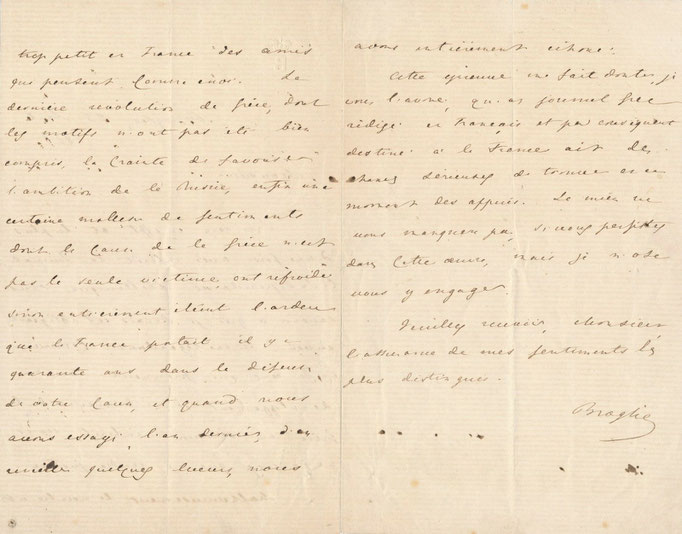 trop petit en France des amis
qui pensent comme moi. La
dernière révolution de Grèce, dont
les motifs n'ont pas été bien
compris, la crainte de favoriser
l'ambition de la Russie, enfin une
certaine mollesse de sentiments
dont la cause de la Grèce n'est
pas la seule victime, ont refroidi
sinon entièrement éteint l'ardeur
que la France mettait il y a
quarante ans, dans la défense
de votre cause, et quand nous
avons essayé, l'an dernier, d'en
réveiller quelques lueurs, nous
avons entièrement échoué.
Cette épreuve me fait douter, je
vous l'avoue, qu'un journal grec
rédigé en français et par conséquent
destiné à la France ait des
chances sérieuses de trouver en ce
moment des appuis. Le mien ne
vous manquera pas, si vous persistez
dans cette œuvre, mais je n'ose
vous y engager.
Veuillez recevoir, Monsieur
l'assurance de mes sentiments les
plus distingués.
Broglie